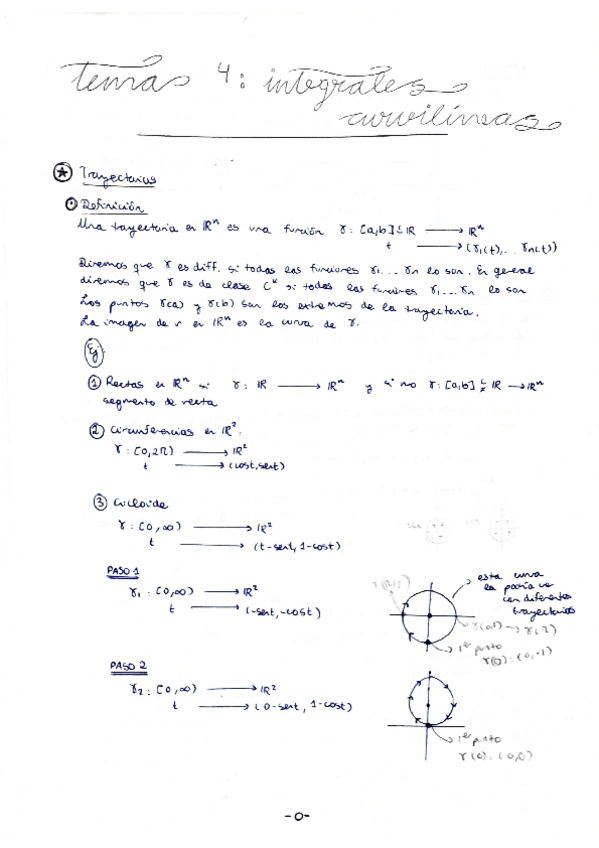 temas 4: integrales
curvilíneas
Trayectorias
Definición
Una trayectoria en ℝⁿ es una función γ: [a,b] ⊆ ℝ → ℝⁿ
t → (γ₁(t),... γn(t))
Diremos que γ es diff. si todas las funciones γ₁... γn lo son. En general
diremos que γ es de clase Cᵏ si todas las funciones γ₁,... γn lo son
Los puntos γ(a) y γ(b) son los extremos de la trayectoria.
La imagen de γ en ℝⁿ es la curva de γ.
Ej
① Rectas en ℝⁿ si γ: ℝ → ℝⁿ y si no γ: [a,b] ⊊ ℝ → ℝⁿ
segmento de recta
② Circunferencias en ℝ²:
γ: [0,2π) → ℝ²
t → (cost, sent)
③ Cicloide
γ: [0,∞) → ℝ²
t → (t-sent, 1-cost)
PASO 1
γ₁: [0,∞) → ℝ²
t → (-sent, -cost)
esta curva
la podría ver
con diferentes
trayectorias
1er punto
γ(0) = (0,-1)
PASO 2
γ₂: [0,∞) → ℝ²
t → (0-sent, 1-cost)
1er punto
γ(0) = (0,0)
-0-